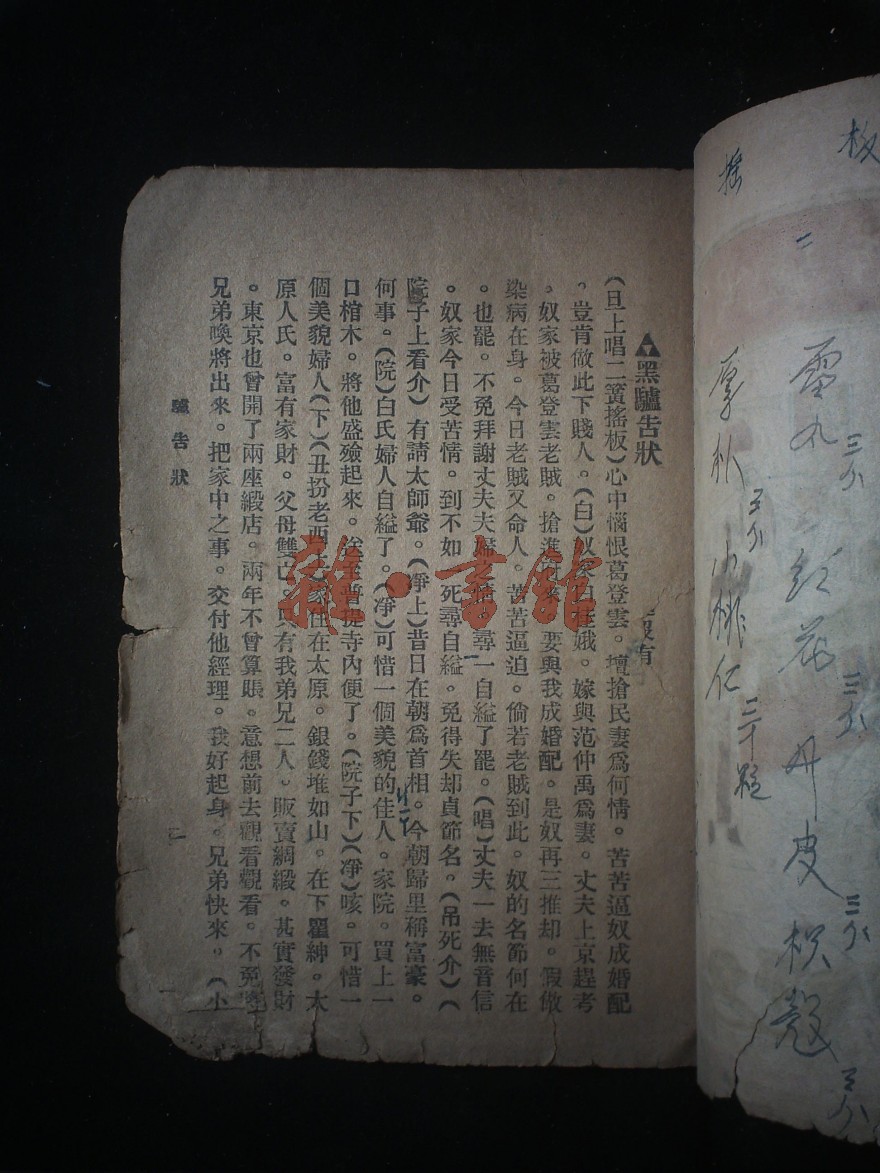 板
搖
一
雷丸 三分 紅花 三分 丹皮 三分 枳殼 三分
厚朴 三分 小桃仁 二十粒
▲黑驢告狀
(旦上唱二簧搖板)心中惱恨葛登雲。壇搶民妻爲何情。苦苦逼奴成婚配
。豈肯做此下賤人。(白)奴家白桂娥。嫁與范仲禹爲妻。丈夫上京趕考
。奴家被葛登雲老賊。搶進府來。要與我成婚配。是奴再三推却。假做
染病在身。今日老賊又命人。苦苦逼迫。倘若老賊到此。奴的名節何在
。也罷。不免拜謝丈夫夫婦之情。尋一自縊了罷。(唱)丈夫一去無音信
。奴家今日受苦情。到不如一死尋自縊。免得失却貞節名。(吊死介)(
院子上看介)有請太師爺。(淨上)昔日在朝爲首相。今朝歸里稱富豪。
何事。(院)白氏婦人自縊了。(淨)可惜一個美貌的佳人。家院。買上一
口棺木。將他盛殮起來。送至普提寺內便了。(院子下)(淨)咳。可惜一
個美貌婦人(下)(丑扮老西上)家住在太原。銀錢堆如山。在下瞿紳。太
原人氏。富有家財。父母雙亡。只有我弟兄二人。販賣綢緞。甚實發財
。東京也曾開了兩座緞店。兩年不曾算賬。意想前去觀看觀看。不免
兄弟喚將出來。把家中之事。交付他經理。我好起身。兄弟快來。(小
驢告狀
一
雜·書館